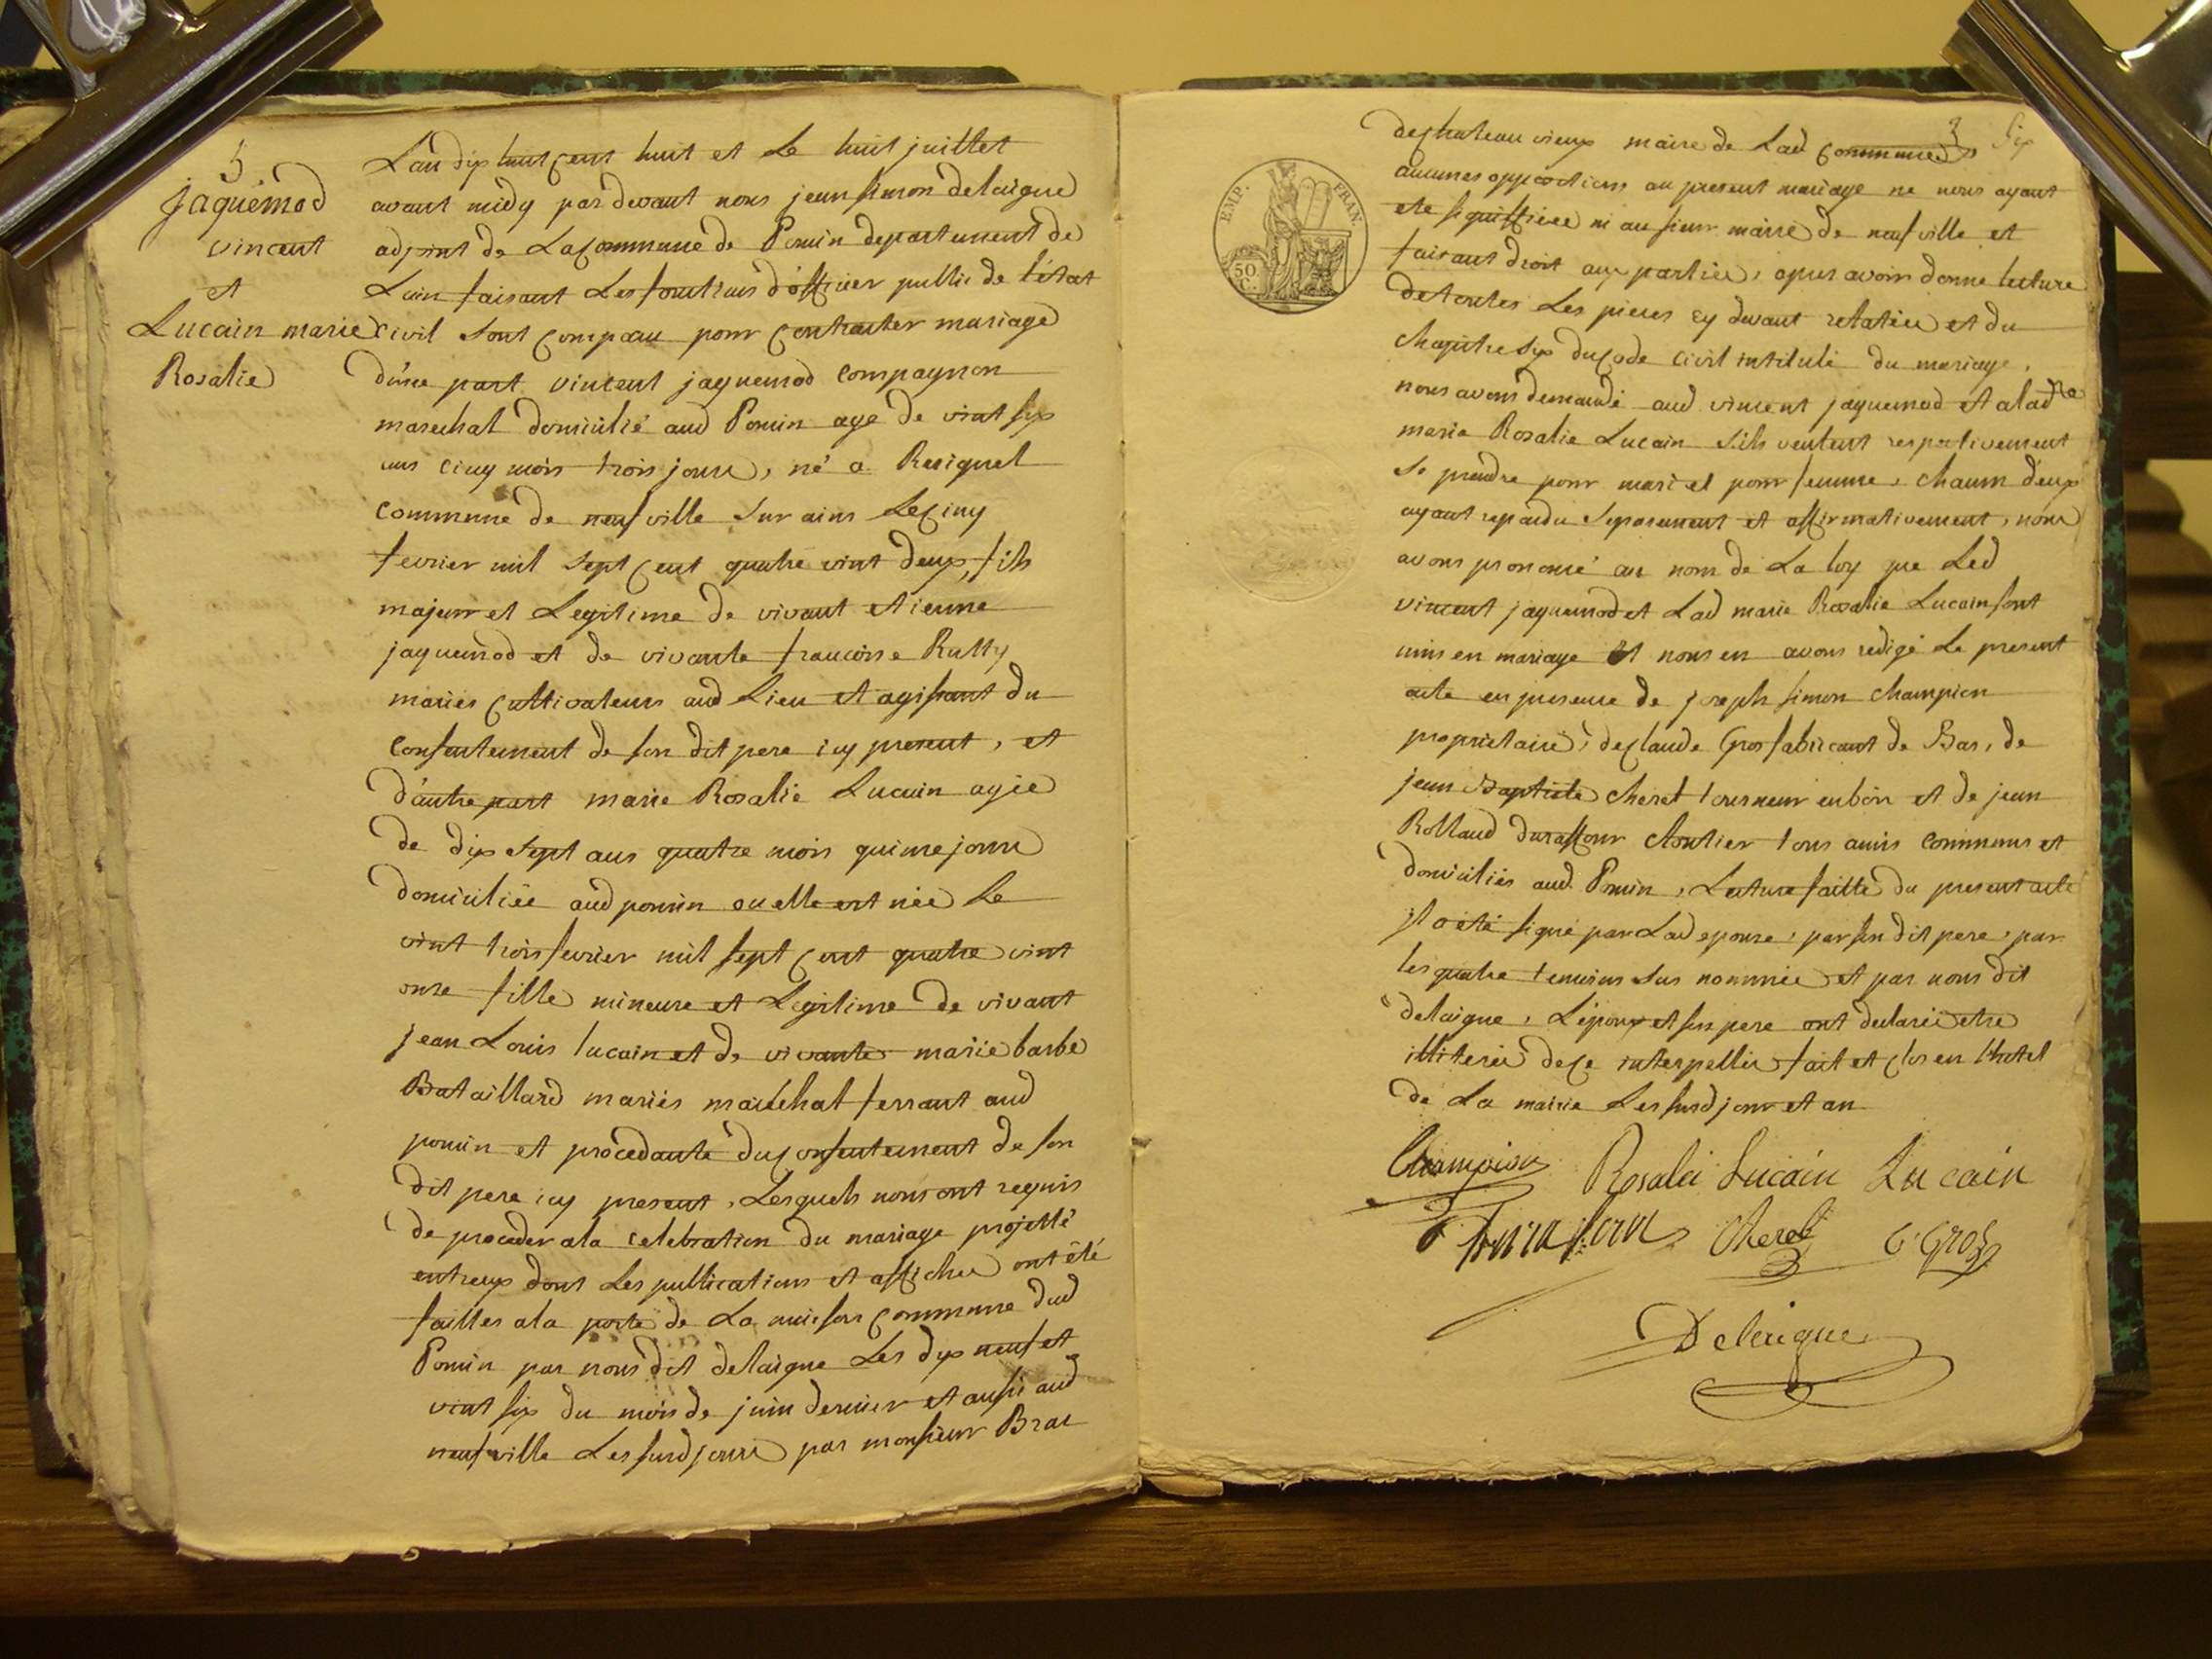 5
jaquemod
vincent
et
Lucain marie
Rosalie
L'an dix huit cent huit et Le huit juillet
avant midy par devant nous jean simon delaigue
adjoint de La Commune de Poncin departement de
L'ain faisant Les fonctions d'officier public de l'état
civil sont comparu pour contracter mariage
d'une part vincent jaquemod compagnon
marechal domicilié aud Poncin age de vint six
ans cinq mois trois jours, né a Resignel
commune de neufville sur ains Le cinq
fevrier mil sept cent quatre vint deux, fils
majeur et Legitime de vivant etienne
jaquemod et de vivante francoise Rutty
mariés cultivateurs aud Lieu et agissant du
consentement de son dit pere icy present, et
d'autre part marie Rosalie Lucain agée
de dix sept ans quatre mois quinze jours
domiciliée aud poncin ou elle est née Le
vint trois fevrier mil sept cent quatre vint
onze fille mineure et Legitime de vivant
jean Louis lucain et de vivante marie barbe
Bataillard mariés maréchal ferrant aud
poncin et procedante du consentement de son
dit pere icy present, Lesquels nous ont requis
de proceder a la celebration du mariage projetté
entreux dont Les publications et affiches ont été
faittes a la porte de La maison commune dud
Poncin par nous dit delaigue Les dix neuf et
vint six du mois de juin dernier et aussi aud
neufville Les susd jours par monsieur Brac
3 Six
de chateau vieux maire de Lad Commune
aucunes oppositions au present mariage ne nous ayant
ete signiffiées ni au sieur maire de neufville et
faisant droit aux parties, apres avoir donne lecture
de toutes Les pieces cy devant relatées et du
chapitre six du Code civil intitulé du mariage,
nous avons demandé aud vincent jaquemod et a lad ne
marie Rosalie Lucain s'ils veulent respectivement
se prendre pour mari et pour femme, chacun d'eux
ayant repondu separement et affirmativement, nous
avons prononcé au nom de La loy que Led
vincent jaquemod et Lad marie Rosalie Lucain sont
unis en mariage Et nous en avons redigé Le present
acte en presence de joseph simon champion
proprietaire, de claude Gros fabricant de Bas, de
jean Baptiste cheret tourneur en bois et de jean
Rolland duraffour cloutier tous amis communs et
domiciliés aud. Poncin, Lecture faitte du present acte
il a été signé par Lad epouse, par son dit pere, par
les quatre temoins sus nommés et par nous dit
delaigue, L'epoux et son pere ont declarés etre
illiterés de ce interpellés fait et clos en l'hotel
de La mairie Les susd jour et an
EMP. FRAN.
50
C.
Champion Rosalei Lucain Lucain
Cheret C Gros
Delaigue